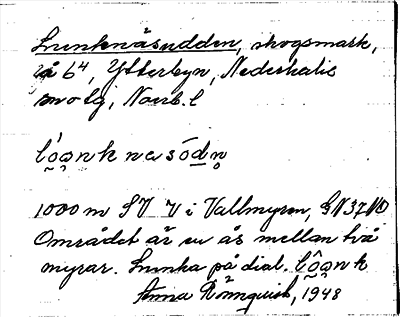 Lunknäsudden, skogsmark,
å 6⁴, Ytterbyn, Nederkalix
sn o tg, Norrb. l
lóank na sódn
1000 m SV V i Vallmyren, GN37NO
Området är en ås mellan två
myrar. Lunka på dial. lôank
Anna Rönnquist, 1948